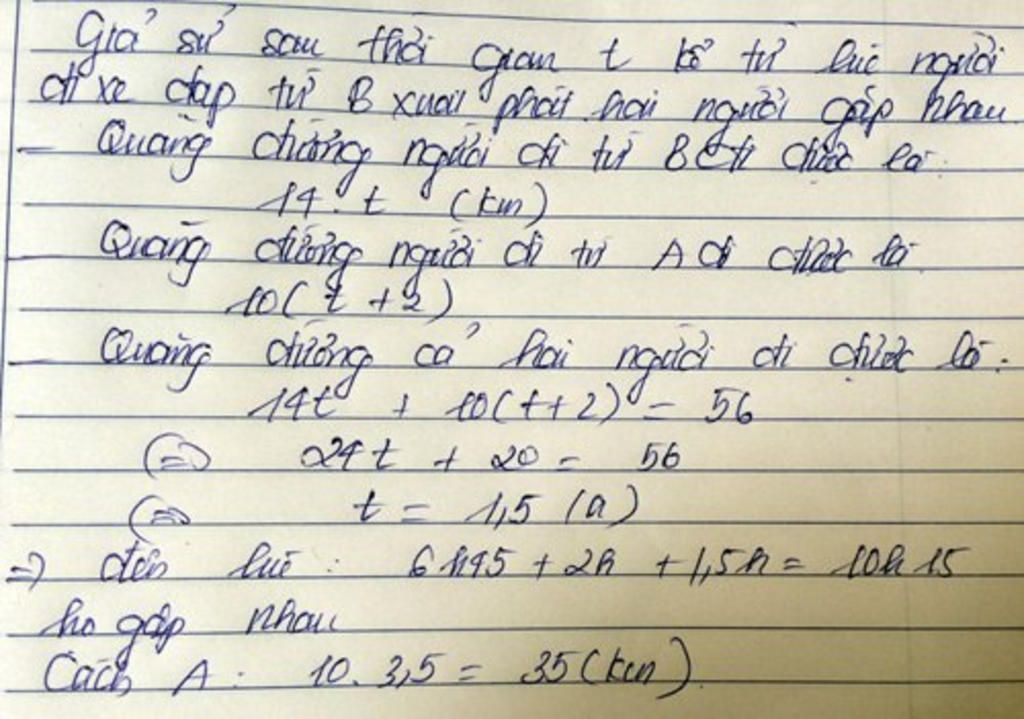 Giả sử sau thời gian t kể từ lúc người
đi xe đạp từ B xuất phát hai người gặp nhau
- Quãng đường người đi từ B đi được là:
14.t (km)
Quãng đường người đi từ A đi được là
10(t+2)
- Quãng đường cả hai người đi được là:
14t + 10(t+2) = 56
(=) 24t + 20 = 56
(=) t = 1,5 (h)
=) đến lúc: 6h45 + 2h + 1,5h = 10h15
họ gặp nhau
Cách A: 10.3,5 = 35(km).